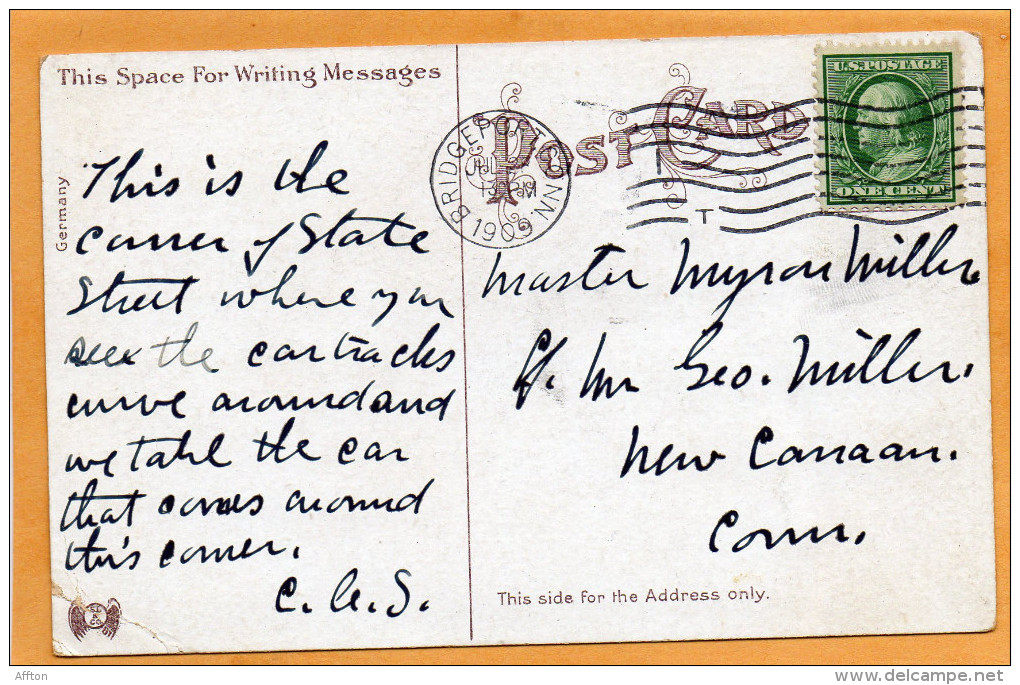 This Space For Writing Messages
POST CARD
U.S. POSTAGE
ONE CENT
BRIDGEPORT CONN.
1909
Germany
This is the
corner of State
Street where you
see the car tracks
curve around and
we take the car
that comes around
this corner.
C. A. S.
Master Myron Miller
Mr Geo. Miller.
New Canaan.
Conn.
This side for the Address only.
Affton
delcampe.net